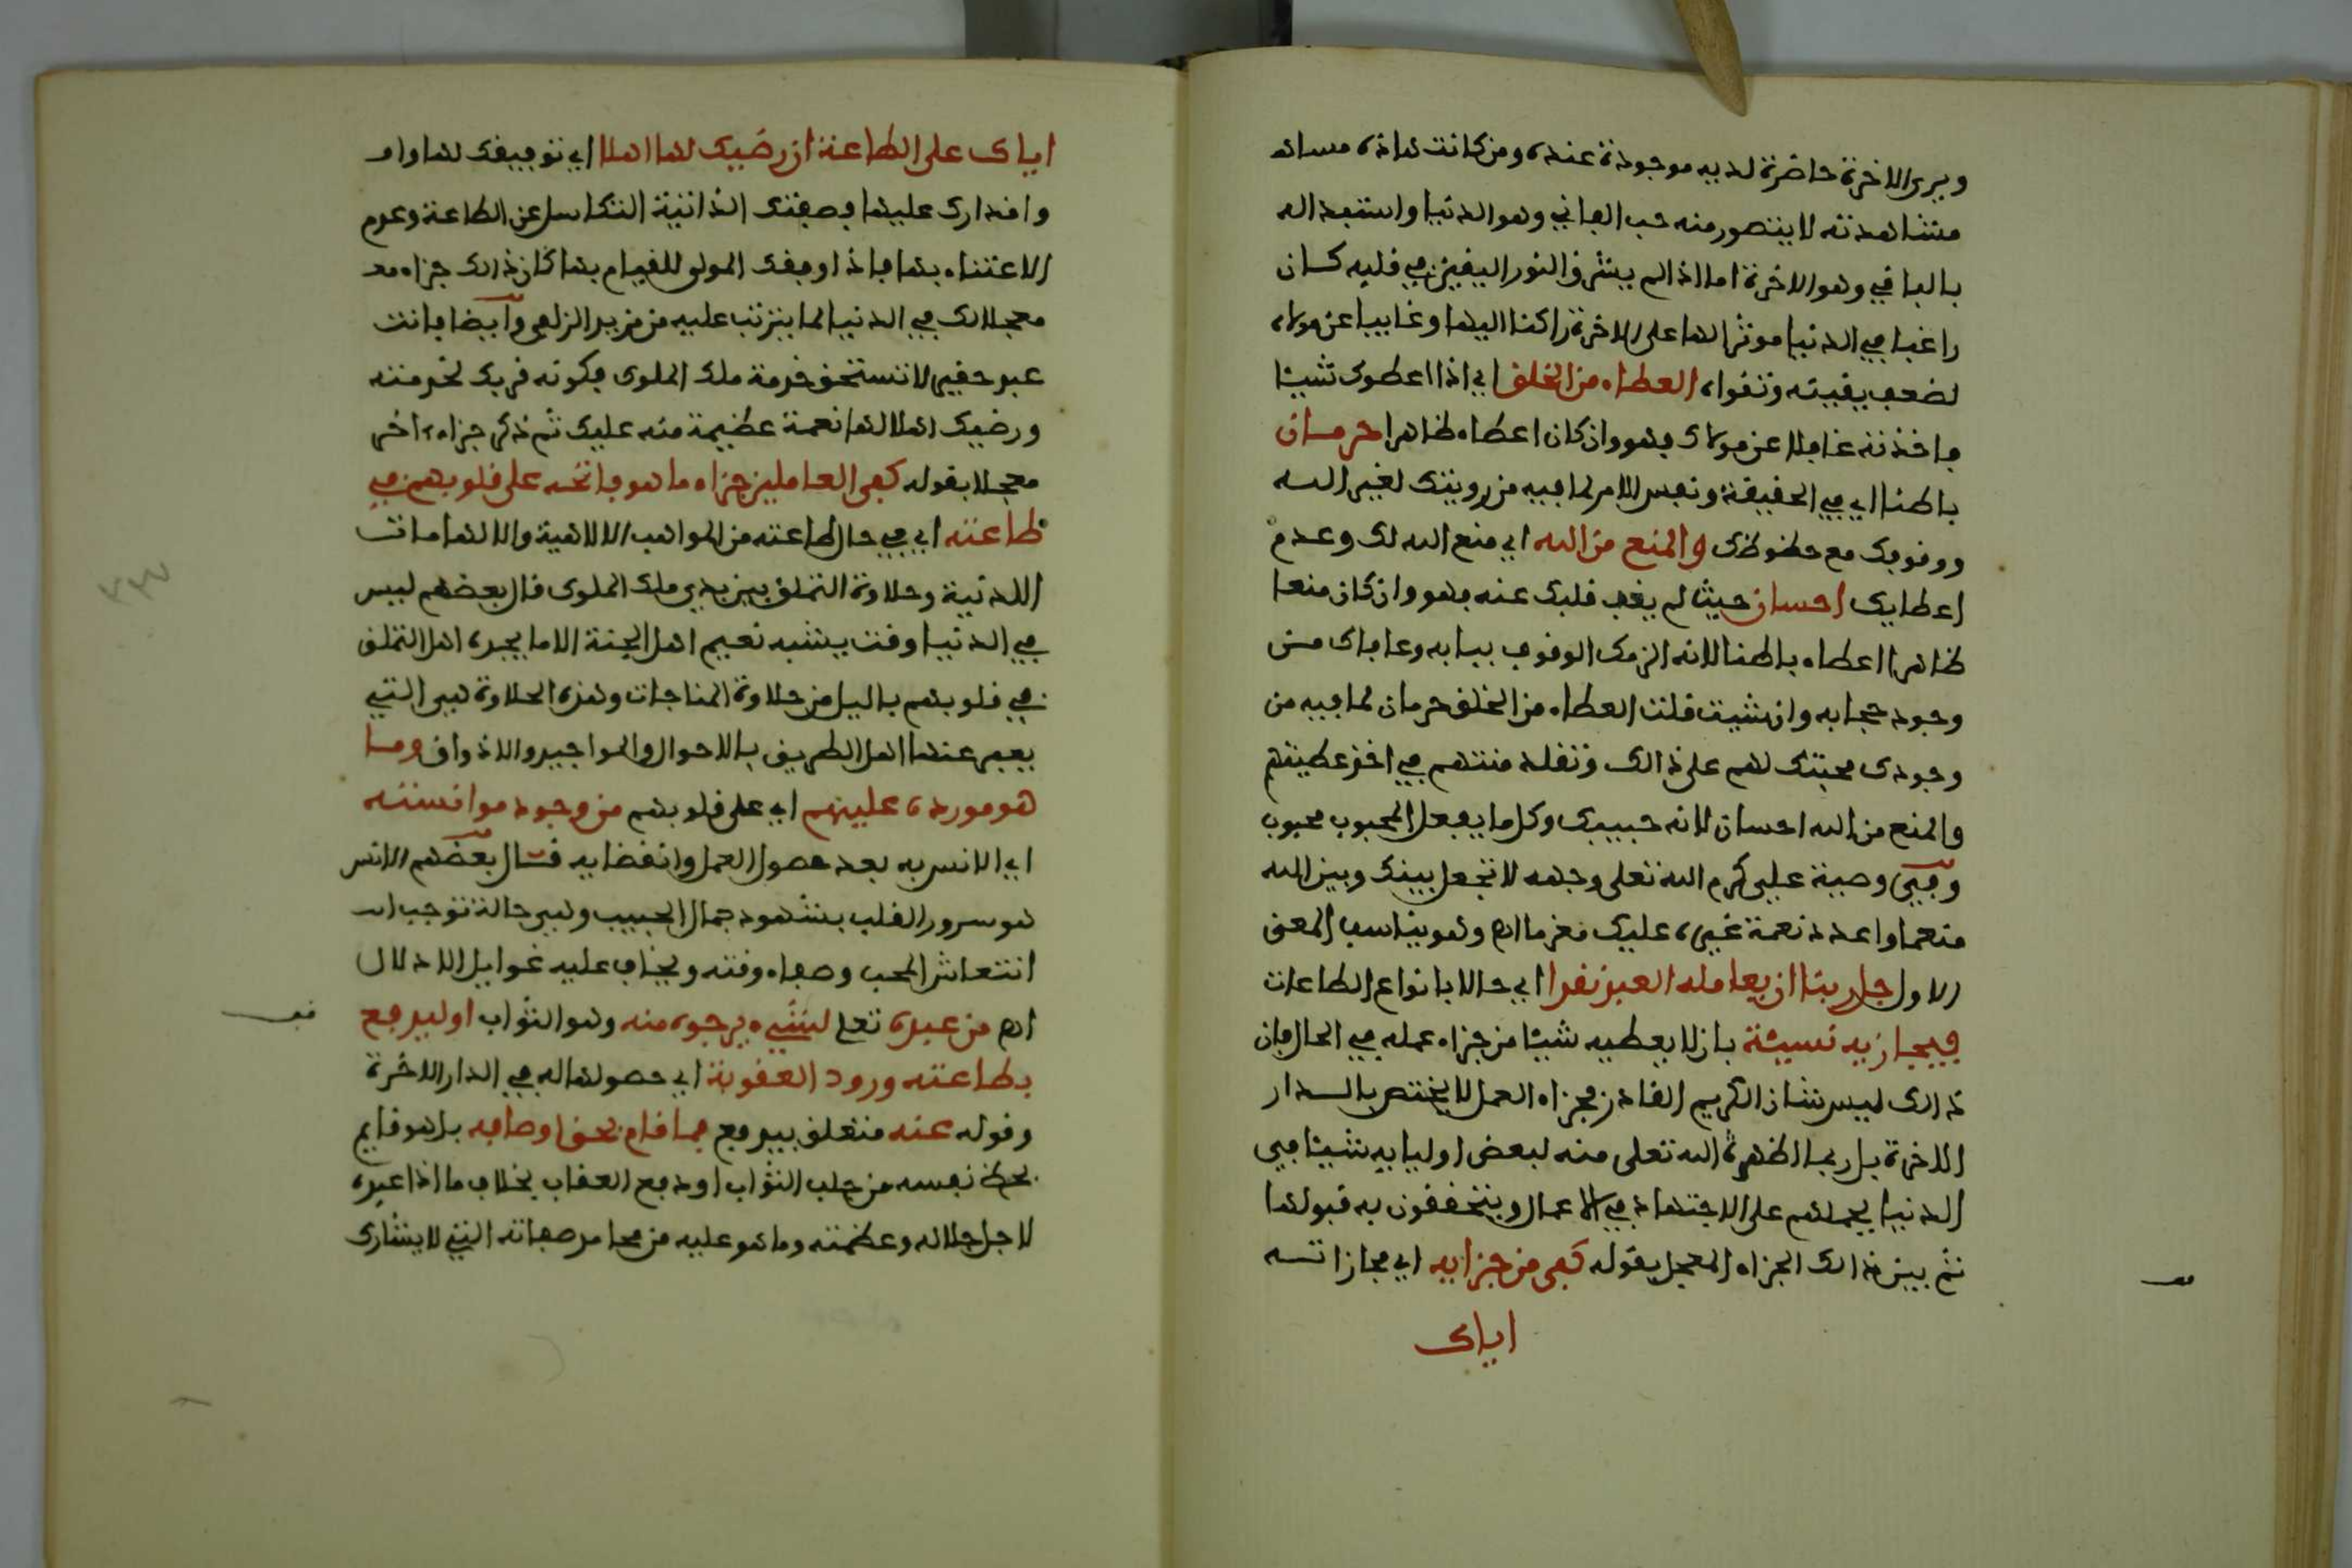 ويرى الاخرة حاضرة لديه موجودة عنده ومن كانت هاذه
مشاهدته لا يتصور منه حب الفاني وهو الدنيا واستبعد اله
بالباقي وهو الاخرة اما اذا لم يشرق النور اليقين في قلبه كان
راغبا في الدنيا موثرا لها على الاخرة راكنا اليها وغايبا عن مولاه
لضعف يقينه وتقواه العطاء من الخلق اي اذا اعطوك شيئا
فاخذته غافلا عن مولاك فهو وان كان اعطاء ظاهرا حرمان
باطنا اي في الحقيقة ونفس الامر لما فيه من رويتك لغير الله
ووقوفك مع حظوظك والمنع من الله اي منع الله لك وعدم
اعطايك احسان حيث لم يغب قلبك عنه فهو وان كان منعا
ظاهرا اعطاء باطنا لانه الزمك الوقوف ببابه وعافاك من
وجود حجابه وان شيت قلت العطاء من الخلق حرمان لما فيه من
وجودك محبتك لهم على ذالك وتقلد منتهم في اخذ عطيتهم
والمنع من الله احسان لانه حبيبك وكل ما يفعل المحبوب محبوب
وفي وصية علي كرم الله تعلى وجهه لا تجعل بينك وبين الله
منعما واعدد نعمة غيره عليك مغرما اهـ وهو يناسب المعنى
الاول جل ربنا ان يعامله العبد نقدا اي حالا بانواع الطاعات
فيجازيه نسيئة بان لا يعطيه شيئا من جزاء عمله في الحال فان
ذالك ليس شان الكريم القادر فجزاء العمل لا يختص بالدار
الاخرة بل ربما اظهر الله تعلى منه لبعض اوليايه شيئا في
الدنيا يحملهم على الاجتهاد في الاعمال ويتحققون به قبولها
ثم بين ذالك الجزاء المعجل بقوله كفى من جزايه اي مجازاته
اياك
اياك على الطاعة ان رضيك لها اهلا اي توفيقك لها
واقدارك عليها فصفتك الذاتية التكاسل عن الطاعة وعدم
الاعتناء بها فاذا اوقفك المولى للقيام بها كان ذالك جزاء
معجلا لك في الدنيا لما يترتب عليه من مزيد الزلفى وايضا فانت
عبد حقير لا تستحق خدمة ملك الملوك فكونه قربك لخدمته
ورضيك اهلا لها نعمة عظيمة منه عليك ثم ذكر جزاء اخر
معجلا بقوله كفى العاملين جزاء ما هو فاتحه على قلوبهم في
طاعته اي في حال طاعته من المواهب الالاهية والالهامات
اللدنية وحلاوة التملق بين يدي ملك الملوك قال بعضهم ليس
في الدنيا وقت يشبه نعيم اهل الجنة الا ما يجده اهل التملق
في قلوبهم باليل من حلاوة المناجات وهذه الحلاوة هي التي
يعبر عنها اهل الطريق بالاحوال والمواجيد والاذواق وما
هو مورده عليهم اي على قلوبهم من وجود موانسته
اي الانس به بعد حصول العمل وانقضايه قال بعضهم الانس
هو سرور القلب بشهود جمال الحبيب وهي حالة توجب
انتعاش المحب وصفاء وقته ويخاف عليه غوايل الادلال
اهـ من عبده تعلى لشيء يرجوه منه وهو الثواب او ليدفع
بطاعته ورود العقوبة اي حصولها له في الدار الاخرة
وقوله عنه متعلق بيدفع فما قام بحق اوصافه بل هو قايم
بحظ نفسه من جلب الثواب او دفع العقاب بخلاف ما اذا عبده
لاجل جلاله وعظمته وما هو عليه من محامد صفاته التي لا يشارك